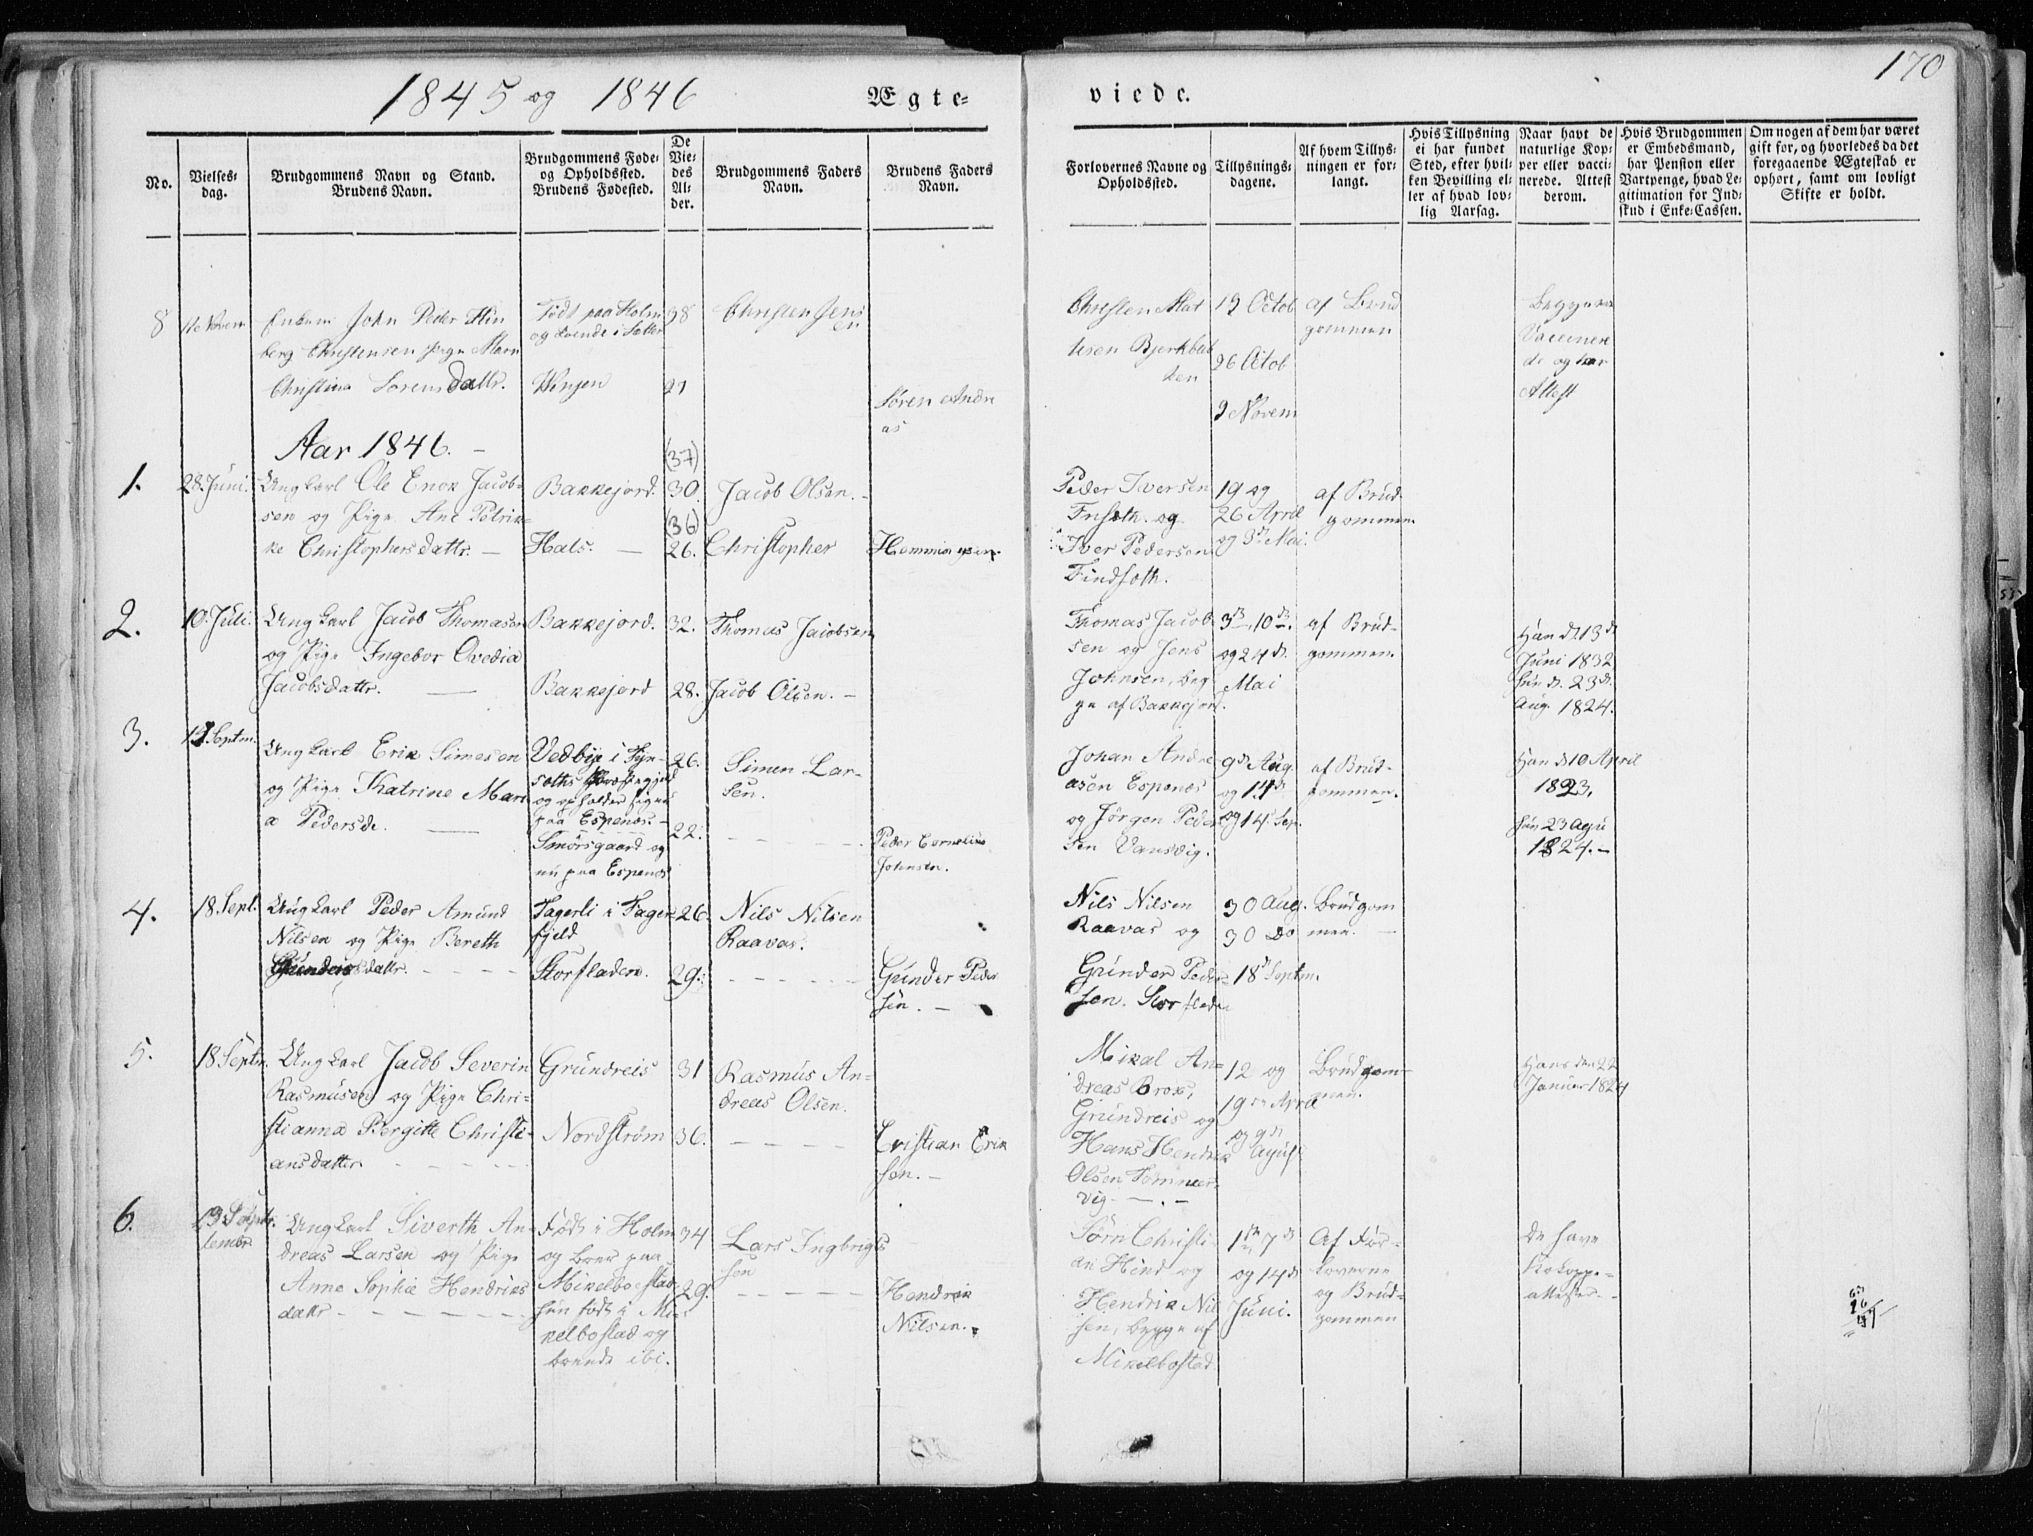 170
1845 og 1846
Ægte=
viede.
No.
Vielses=
dag.
Brudgommens Navn og Stand.
Brudens Navn.
Brudgommens Føde=
og Opholdssted.
Brudens Fødested.
De
Vie=
des
Al=
der.
Brudgommens Faders
Navn.
Brudens Faders
Navn.
Forlovernes Navne og
Opholdssted.
Tillysnings=
dagene.
Af hvem Tillys=
ningen er for=
langt.
Hvis Tillysning
ei har fundet
Sted, efter hvil=
ken Bevilling el=
ler af hvad lov=
lig Aarsag.
Naar havt de
naturlige Kop=
per eller vacci=
nerede. Attest
derom.
Hvis Brudgommen
er Embedsmand,
har Pension eller
Vartpenge, hvad Le=
gitimation for Ind=
skud i Enke=Cassen.
Om nogen af dem har været
gift før, og hvorledes da det
foregaaende Ægteskab er
ophørt, samt om lovligt
Skifte er holdt.
8
John Peder Hin
berg Christensen Pige Maren
Christina Sørensdattr.
Født paa Holm
og boende i
Vinjen
38
27
Christen Jens
en
Søren Andre
as
Christen Mat
tisen Bjerkbak
ken
19 Octob
26 Octob
9 Novem
af Brud
gommen
Begge ere
Vaccinere
de og har
Attest
Aar 1846. -
1.
28. Juni.
Ung Karl Ole Enok Jacob=
sen og Pige Ane Petrik=
ke Christophersdattr. -
Bakkejord.
Hals. -
(37)
30.
(36)
26.
Jacob Olsen. -
Christopher
Hemmingsen.
Peder Iversen
Finfoth. og
Iver Pedersen
Findfoth.
19 og
26 April
og 3 Mai.
af Brud=
gommen.
2.
10. Juli.
Ung Karl Jacob Thomasen
og Pige Ingebor Ovedia
Jacobsdattr. -
Bakkejord.
Bakkejord
32.
28.
Thomas Jacobsen
Jacob Olsen. -
Thomas Jacob
sen og Jens
Johnsen, beg=
ge af Bakkejord.
3d, 10d.
og 24d.
Mai
af Brud=
gommen.
Han d. 13d
Juni 1832
Hun d. 23d.
Aug. 1824.
3.
Septm.
Ung Karl Erik Simesen
og Pige Katrine Mari
a Pedersd. -
Vedbye i Tyn=
soths Præstegjeld
og opholder sig nu
paa Espenæs. -
Smørsgaard og
nu paa Espenæs
26.
22.
Simen Lar=
sen.
Peder Cornelius
Johnsen.
Johan Andre
asen Espenæs
og Jørgen Peder
sen Vansvig.
9d Aug
og
og 14. Sep.
af Brud=
gommen.
Han d 10 April
1823.
Hun 23 Agu
1824. -
4.
18. Sept.
Ung Karl Peder Amund
Nilsen og Pige Bereth
Gundersdattr. - - - -
Fagerli i Fager
fjeld
Storfladen.
26.
29.
Nils Nilsen
Raavas.
Gunder Peder
sen. -
Nils Nilsen
Raavas og
Gunder Peder=
sen. Storfladen
30 Aug.
30 Do
18d Septm.
Brudgom
men. -
5.
18. Septm.
Ung Karl Jacob Severin
Rasmusen og Pige Chri=
stianna Bergitte Christi=
ansdatter
Grundreis
Nordstrøm
31
36.
Rasmus An=
dreas Olsen.
Cristian Erik
sen. -
Mikal An=
dreas Brox,
Grundreis og
Hans Hendrik
Olsen Tømmer=
vig
12 og
19de April
og 9d
Agust
Brudgom=
men.
Hans den 22
Januar 1824
6.
13 Septr.
tembr.
Ung Karl Siverth An=
dreas Larsen og Pige
Anne Sophia Hendriks
dattr
Født i Holm
og boer paa
Mikelbostad
hun født i Mi=
kelbostad og
boende ibi.
34
29.
Lars Ingbrigts
sen
Hendrik
Nilsen.
Sørn Christi
an Hind og
Hendrik Nil
sen, begge af
Mikelbostad.
1ste 7de
og 14d
Juni.
Af For=
loverne
og Brud=
gommen
De have
Kokoppe=
attester.